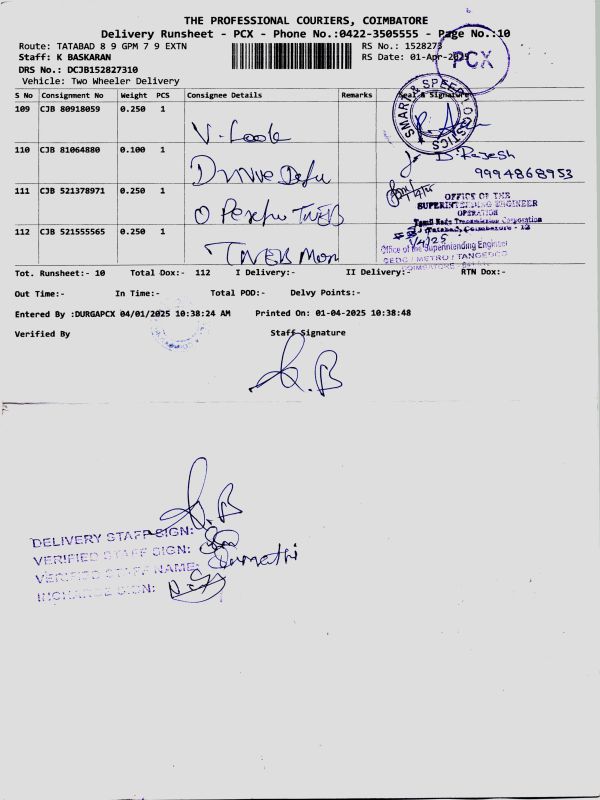 THE PROFESSIONAL COURIERS, COIMBATORE
Delivery Runsheet - PCX - Phone No.:0422-3505555 - Page No.:10
Route: TATABAD 8 9 GPM 7 9 EXTN
RS No.: 1528273
Staff: K BASKARAN
RS Date: 01-Apr-2025
PCX
DRS No.: DCJB152827310
Vehicle: Two Wheeler Delivery
S No Consignment No Weight PCS Consignee Details Remarks Seal & Signature
109 CJB 80918059 0.250 1
SMART & SPEED LOGISTICS
110 CJB 81064880 0.100 1
D. Rajesh
9994868953
111 CJB 521378971 0.250 1
TNEB
OFFICE OF THE
SUPERINTENDING ENGINEER
OPERATION
Tamil Nadu Transmission Corporation
Tatabad, Coimbatore - 12
112 CJB 521555565 0.250 1
TNEB
1/4/25
Office of the Superintending Engineer
CEDC / METRO / TANGEDCO
COIMBATORE
Tot. Runsheet:- 10 Total Dox:- 112 I Delivery:- II Delivery:- RTN Dox:-
Out Time:- In Time:- Total POD:- Delvy Points:-
Entered By :DURGAPCX 04/01/2025 10:38:24 AM Printed On: 01-04-2025 10:38:48
Verified By Staff Signature
DELIVERY STAFF SIGN:
VERIFIED STAFF SIGN:
VERIFIED STAFF NAME:
INCHARGE SIGN: